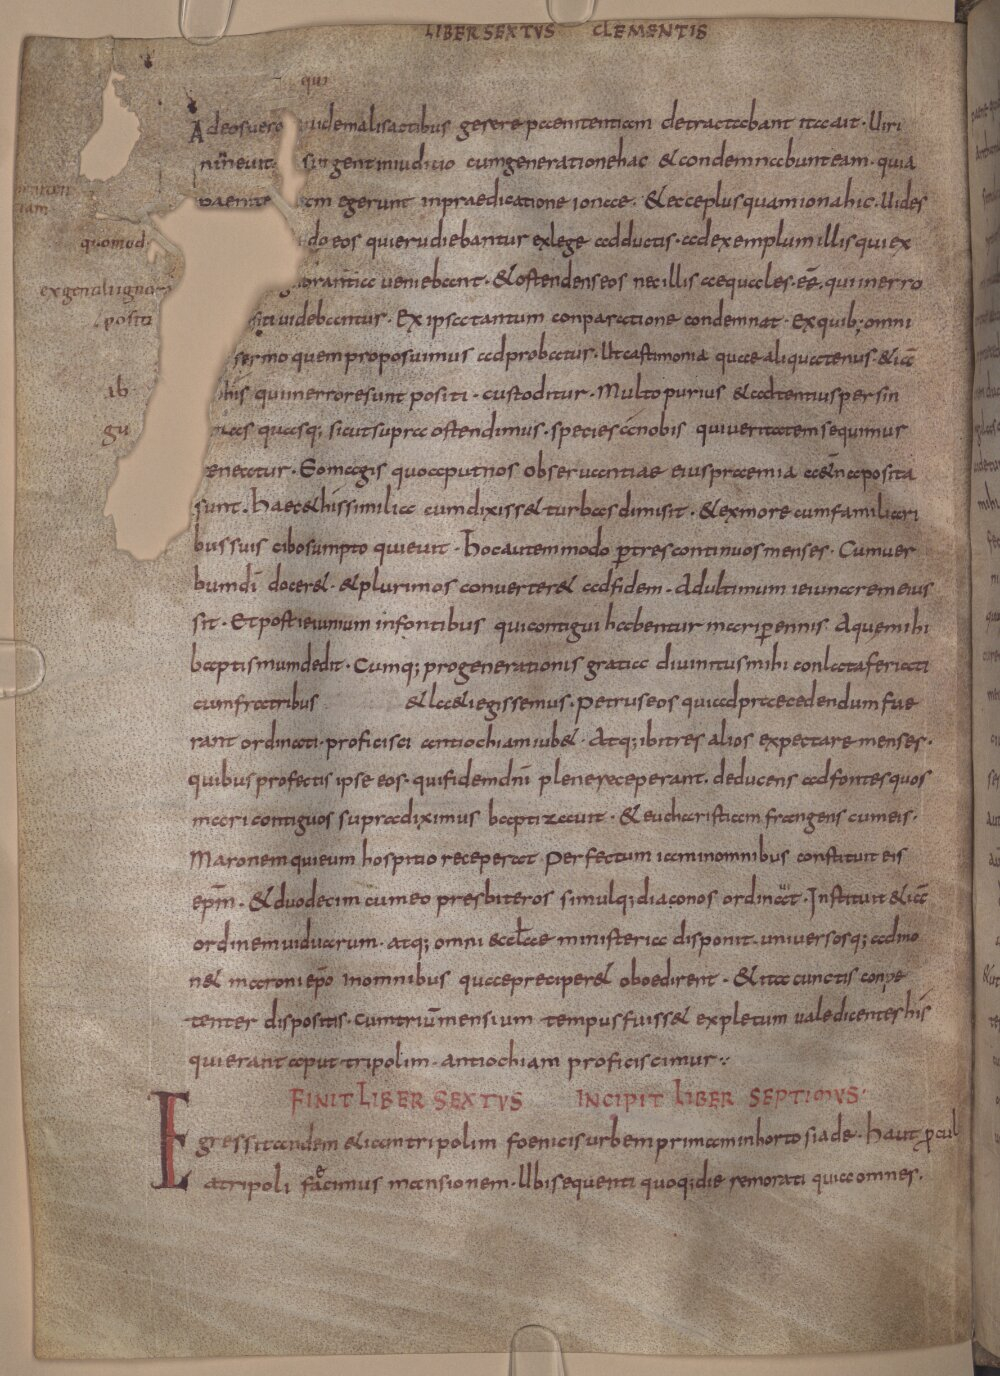 LIBER SEXTVS CLEMENTIS
qui
Adeos uero uidemalisactibus gesere paenitentiam detractabant ita ait · Uiri
nineuit surgent iniudicio cumgenerationehac & condemnabunt eam · quia
paenite am egerunt inpraedicatione ionae · & ecce plus quam iona hic · Uides
quomod do eos qui erudiebantur ex lege adductis · ad exemplum illis qui ex
ex gen ali ignora norantia ueniebant · & ostendens eos nec illis aequales · eē · qui inerro
positi siti uidebantur · Ex ipsa tantum conparatione condemnat · Ex quib; omni
sermo quem proposuimus adprobatur · Ut castimonia quae aliquatenus · & iā
ib his qui inerrore sunt positi · custoditur · Multo purius & adtentius per sin
gu quasq; sicut supra ostendimus · species a nobis qui ueritatem sequimur
eneatur · Eo magis quo aput nos obseruantiae eius praemia aet̄na posita
sunt · Haec & his similia cum dixiss& turbas dimisit · & ex more cum familiari
bus suis cibo sumpto quieuit · Hoc autem modo p̱ tres continuos menses · Cum uer
bum dī docer& · & plurimos conuerter& ad fidem · Ad ultimum ieiunarem eius
sit · Et post ieiunium in fontibus qui contigui habentur mari p̱ennis · Aquemihi
baptismum dedit · Cumq; progenerationis gratia diuinitus mihi conlata feriati
cum fratribus & laeti egissemus · Petrus eos qui ad praecedendum fue
rant ordinati · proficisci antiochiam iub& · Atq; ibi tres alios expectare menses ·
quibus profectis ipse eos · qui fidem dn̄i plene receperant · deducens ad fontes quos
mari contiguos supra diximus baptizauit · & eucharistiam frangens cum eis ·
Maronem qui eum hospitio receperat · Perfectum iam in omnibus constituit eis
epm̄ · & duodecim cum eo presbiteros simulq; diaconos ordinat · Instituit & iā
ordinem uiduarum · atq; omnia eccl̄ae ministeria disponit · uniuersosq; admo
n& maroni ep̄o in omnibus quae preciper& oboedirent · & ita cunctis conpe
tenter dispositis · cum triūm mensium tempus fuiss& expletum uale dicentes his
qui erant aput tripolim · antiochiam proficiscimur ·:·
FINIT LIBER SEXTVS INCIPIT LIBER SEPTIMVS ·
Egressi tandem & iam tripolim foenicis urbem primam in hortosiade · Haut p̱cul
a tripoli facimus mansionem · Ubi sequenti quoq; die remorati quia omnes ·